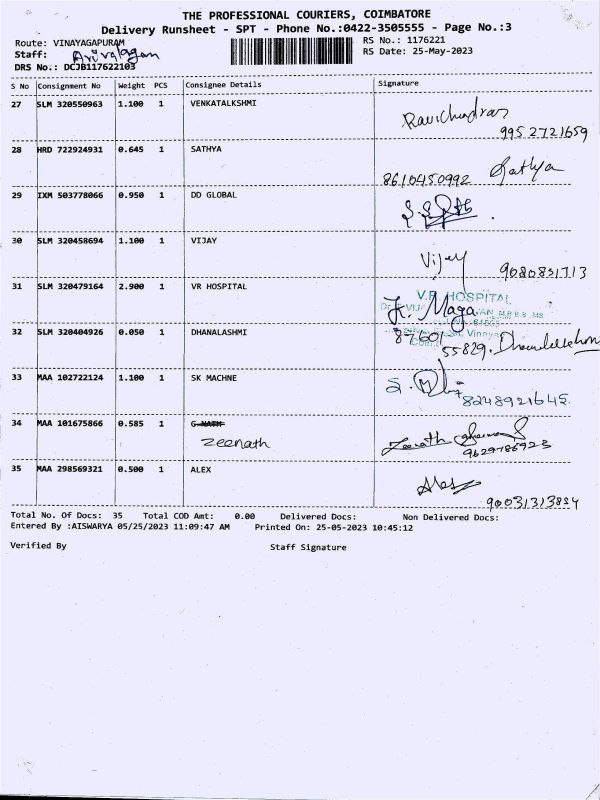 THE PROFESSIONAL COURIERS, COIMBATORE
Delivery Runsheet - SPT - Phone No.:0422-3505555 - Page No.:3
Route: VINAYAGAPURAM RS No.: 1176221
Staff: Arivalagan RS Date: 25-May-2023
DRS No.: DCJB117622103
S No Consignment No Weight PCS Consignee Details Signature
27 SLM 320550963 1.100 1 VENKATALKSHMI Ravichandran
9952721659
28 HRD 722924931 0.645 1 SATHYA
8610450992 Sathya
29 IXM 503778066 0.950 1 DD GLOBAL
30 SLM 320458694 1.100 1 VIJAY Vijay
9080831713
31 SLM 320479164 2.900 1 VR HOSPITAL V.R HOSPITAL
K. Maga
32 SLM 320404926 0.050 1 DHANALASHMI 87601
55829.
33 MAA 102722124 1.100 1 SK MACHNE
8248921645.
34 MAA 101675866 0.585 1 G NATH
Zeenath Zeenath
9629786923
35 MAA 298569321 0.500 1 ALEX Alex
90031313884
Total No. Of Docs: 35 Total COD Amt: 0.00 Delivered Docs: Non Delivered Docs:
Entered By :AISWARYA 05/25/2023 11:09:47 AM Printed On: 25-05-2023 10:45:12
Verified By Staff Signature